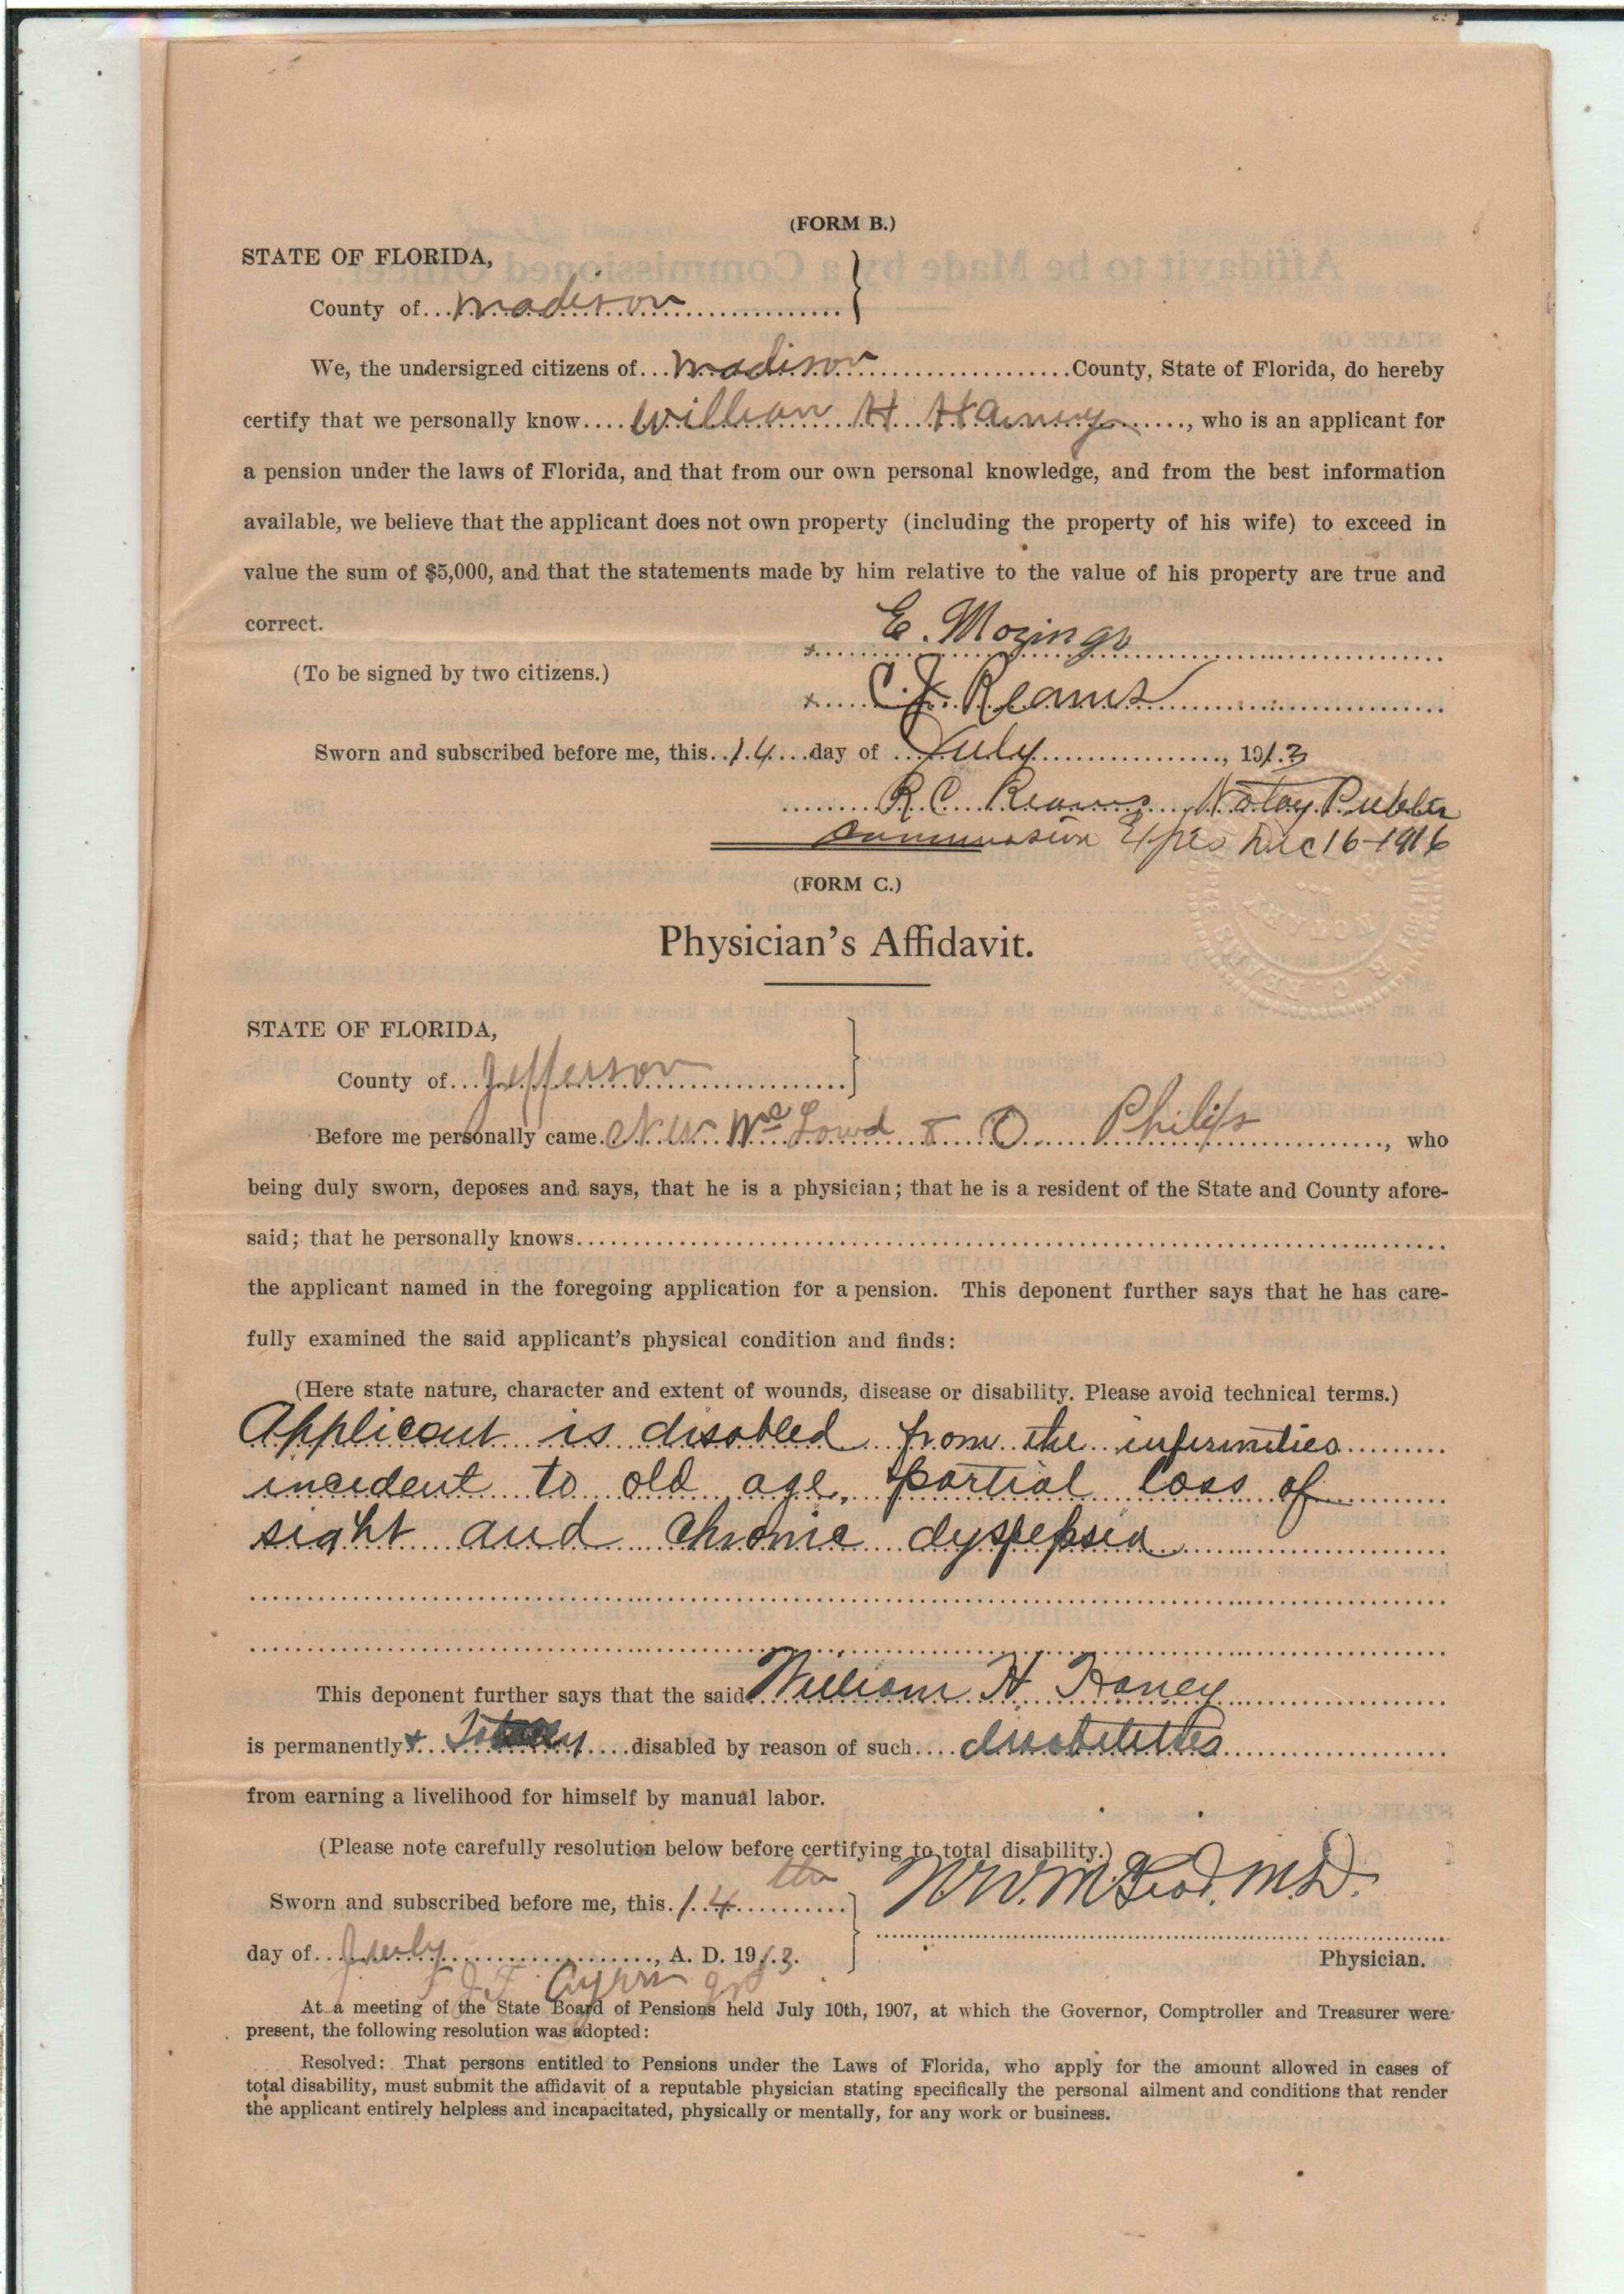 (FORM B.)
STATE OF FLORIDA,
County of Madison
We, the undersigned citizens of Madison County, State of Florida, do hereby
certify that we personally know William H Haney, who is an applicant for
a pension under the laws of Florida, and that from our own personal knowledge, and from the best information
available, we believe that the applicant does not own property (including the property of his wife) to exceed in
value the sum of $5,000, and that the statements made by him relative to the value of his property are true and
correct.
x E. Mozingo
(To be signed by two citizens.)
x C. J. Reams
Sworn and subscribed before me, this 14 day of July, 1913
R C Reams Notary Public
Commission Expires Dec 16-1916
(FORM C.)
Physician's Affidavit.
STATE OF FLORIDA,
County of Jefferson
Before me personally came N W & O Philips, who
being duly sworn, deposes and says, that he is a physician; that he is a resident of the State and County afore-
said; that he personally knows
the applicant named in the foregoing application for a pension. This deponent further says that he has care-
fully examined the said applicant's physical condition and finds:
(Here state nature, character and extent of wounds, disease or disability. Please avoid technical terms.)
Applicant is disabled from the infirmities
incident to old age, partial loss of
sight and chronic dyspepsia
This deponent further says that the said William H. Haney
is permanently & Totally disabled by reason of such
from earning a livelihood for himself by manual labor.
(Please note carefully resolution below before certifying to total disability.)
Sworn and subscribed before me, this 14th
N.W. M.D.
day of July, A. D. 1913.
Physician.
At a meeting of the State Board of Pensions held July 10th, 1907, at which the Governor, Comptroller and Treasurer were
present, the following resolution was adopted:
Resolved: That persons entitled to Pensions under the Laws of Florida, who apply for the amount allowed in cases of
total disability, must submit the affidavit of a reputable physician stating specifically the personal ailment and conditions that render
the applicant entirely helpless and incapacitated, physically or mentally, for any work or business.